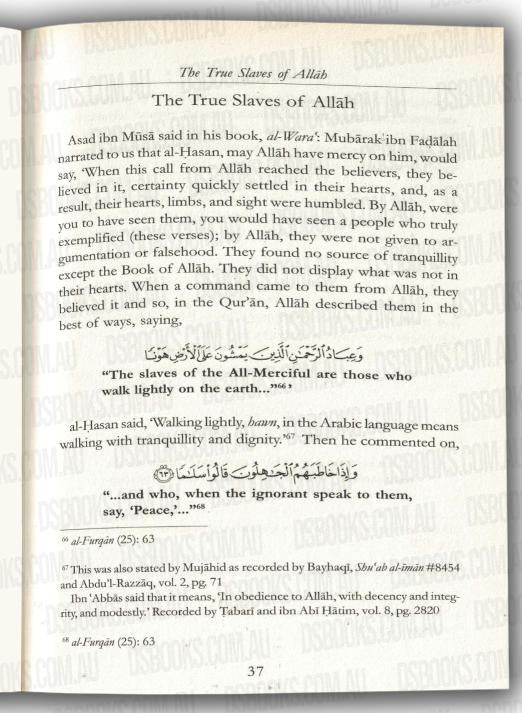 The True Slaves of Allāh
The True Slaves of Allāh
Asad ibn Mūsā said in his book, al-Waraʿ: Mubārak ibn Faḍālah
narrated to us that al-Ḥasan, may Allāh have mercy on him, would
say, ‘When this call from Allāh reached the believers, they be-
lieved in it, certainty quickly settled in their hearts, and, as a
result, their hearts, limbs, and sight were humbled. By Allāh, were
you to have seen them, you would have seen a people who truly
exemplified (these verses); by Allāh, they were not given to ar-
gumentation or falsehood. They found no source of tranquillity
except the Book of Allāh. They did not display what was not in
their hearts. When a command came to them from Allāh, they
believed it and so, in the Qur’ān, Allāh described them in the
best of ways, saying,
وَعِبَادُ ٱلرَّحْمَـٰنِ ٱلَّذِينَ يَمْشُونَ عَلَى ٱلْأَرْضِ هَوْنًا
“The slaves of the All-Merciful are those who
walk lightly on the earth...”⁶⁶’
al-Ḥasan said, ‘Walking lightly, hawn, in the Arabic language means
walking with tranquillity and dignity.’⁶⁷ Then he commented on,
وَإِذَا خَاطَبَهُمُ ٱلْجَـٰهِلُونَ قَالُوا۟ سَلَـٰمًا ﴿٦٣﴾
“...and who, when the ignorant speak to them,
say, ‘Peace,’...”⁶⁸
⁶⁶ al-Furqān (25): 63
⁶⁷ This was also stated by Mujāhid as recorded by Bayhaqī, Shuʿab al-īmān #8454
and Abdu’l-Razzāq, vol. 2, pg. 71
Ibn ʿAbbās said that it means, ‘In obedience to Allāh, with decency and integ-
rity, and modestly.’ Recorded by Ṭabarī and ibn Abī Ḥātim, vol. 8, pg. 2820
⁶⁸ al-Furqān (25): 63
37
DSBOOKS.COM.AU